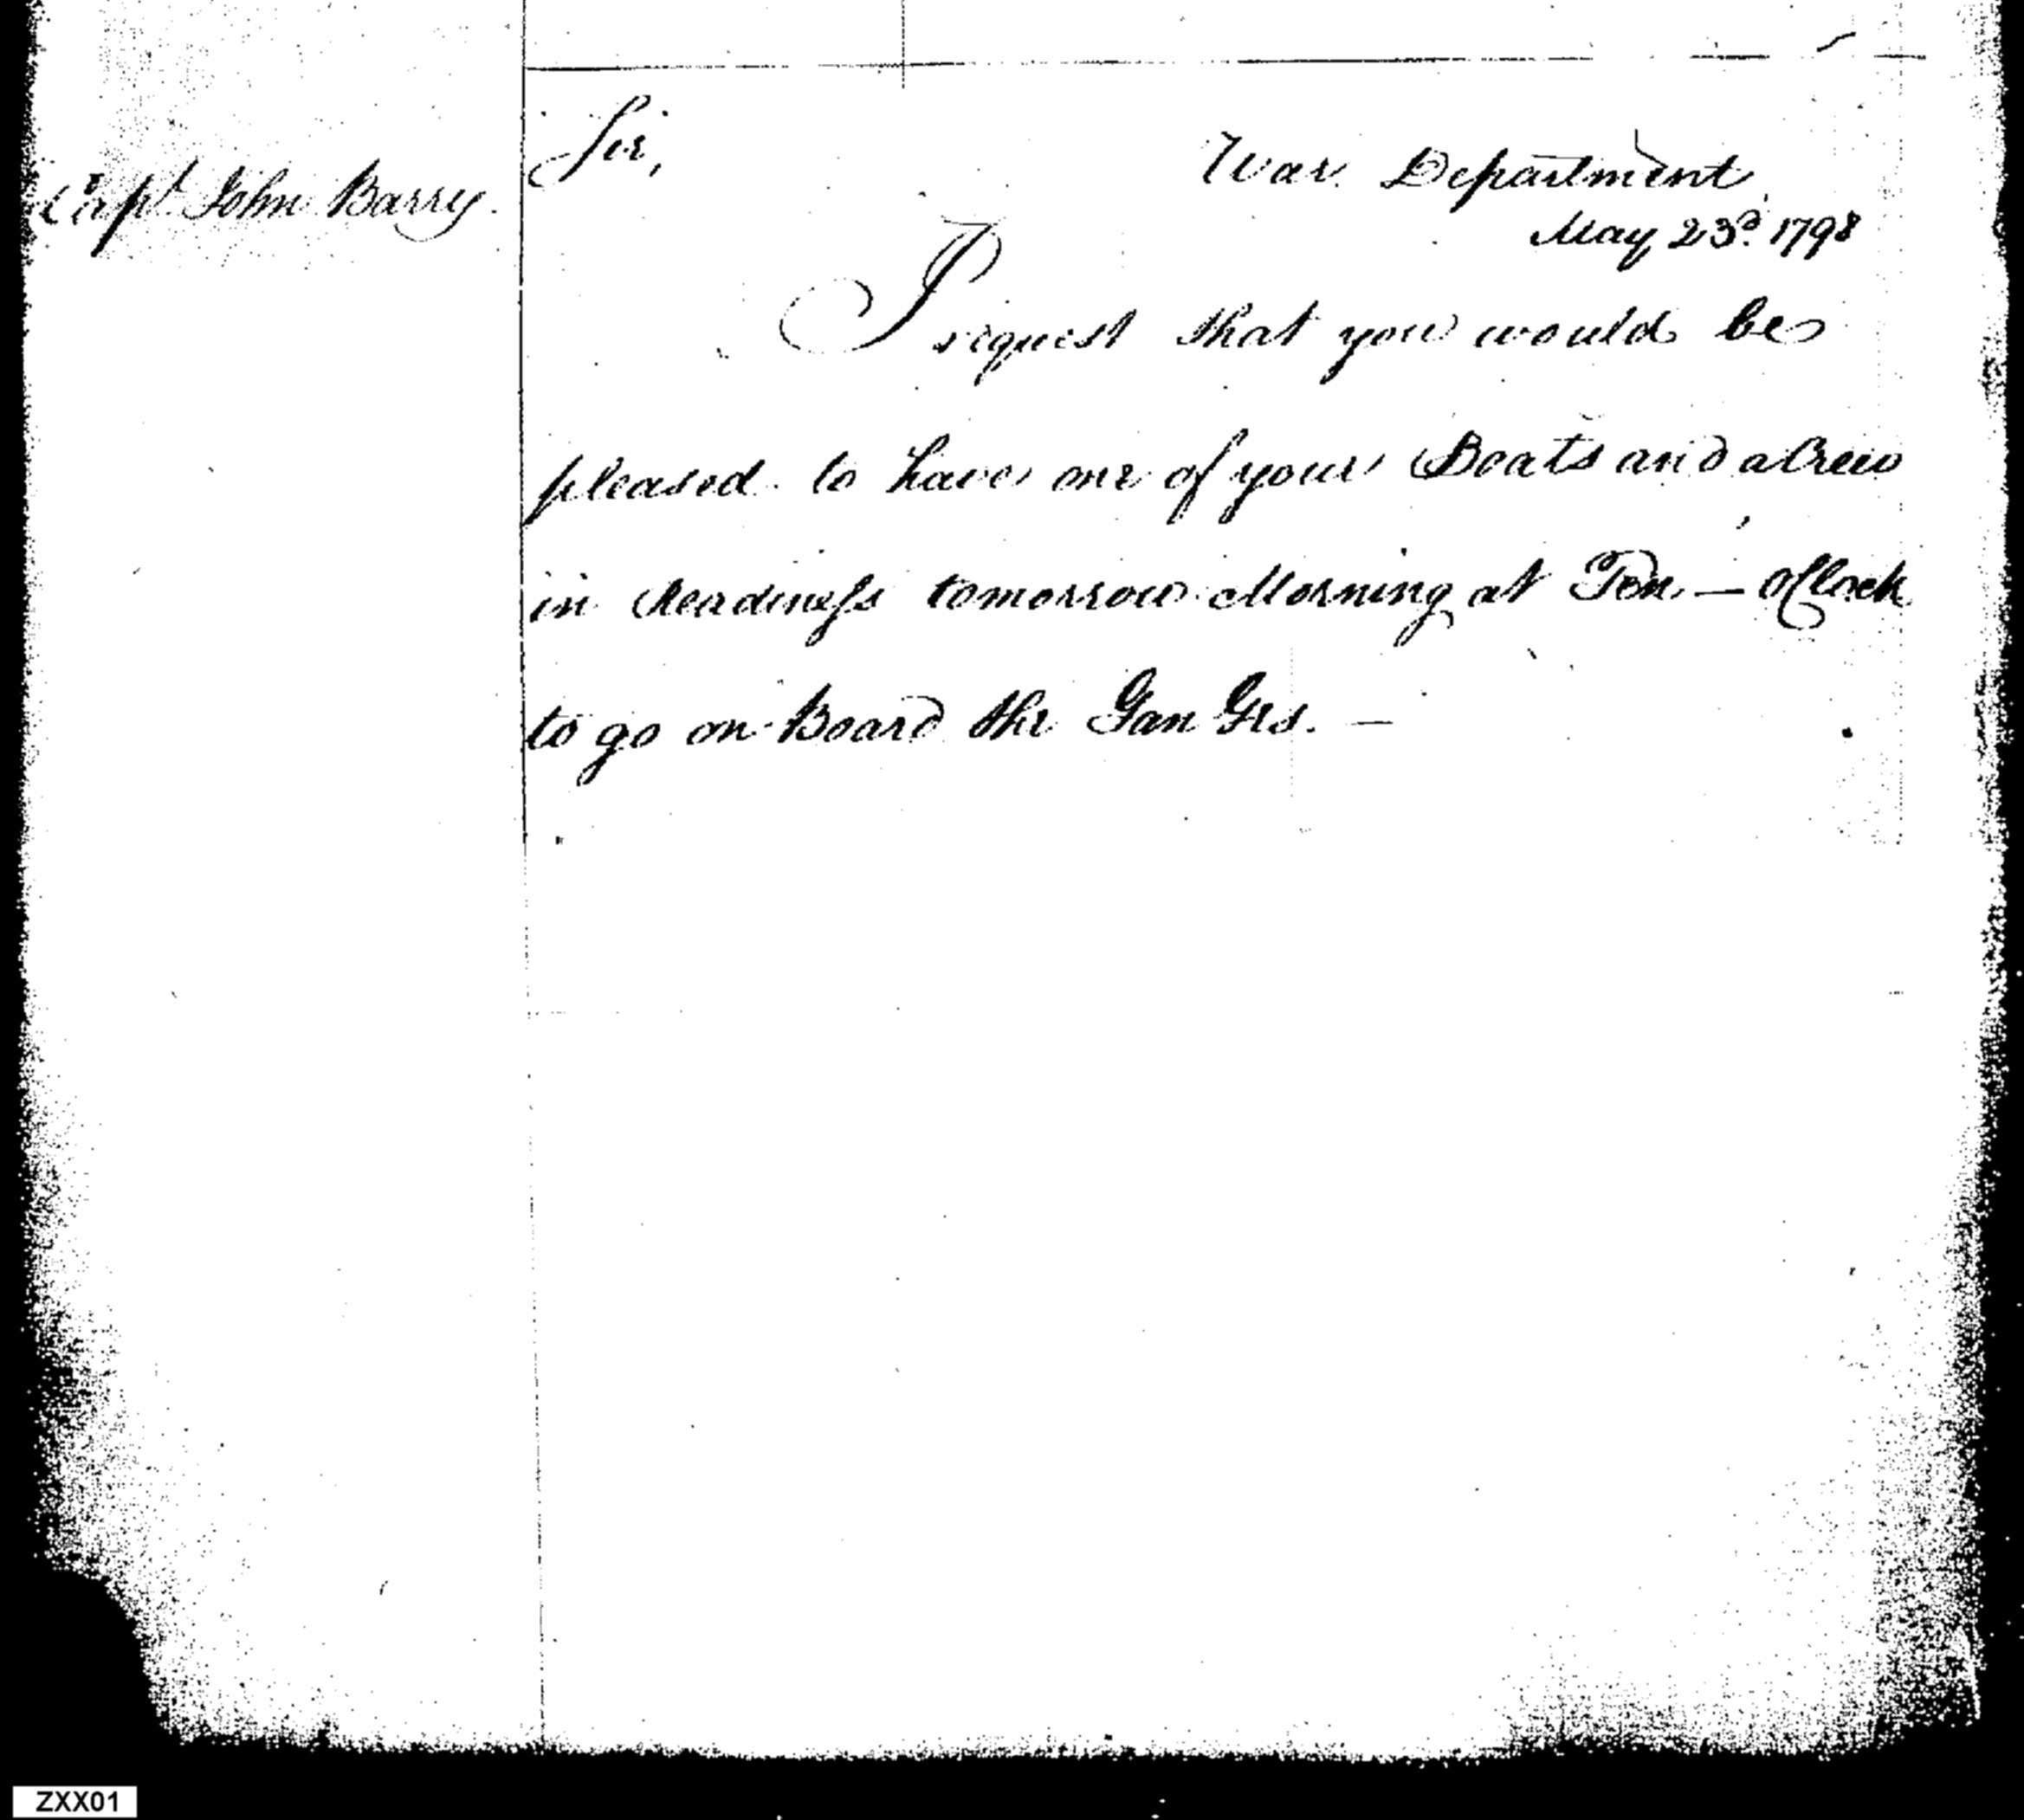 Sir,
War Department,
Capt. John Barry.
May 23d. 1798
I request that you would be
pleased to have one of your Boats and a Crew
in Readiness tomorrow Morning at Ten — oClock
to go on Board the Gan Ges. —
ZXX01